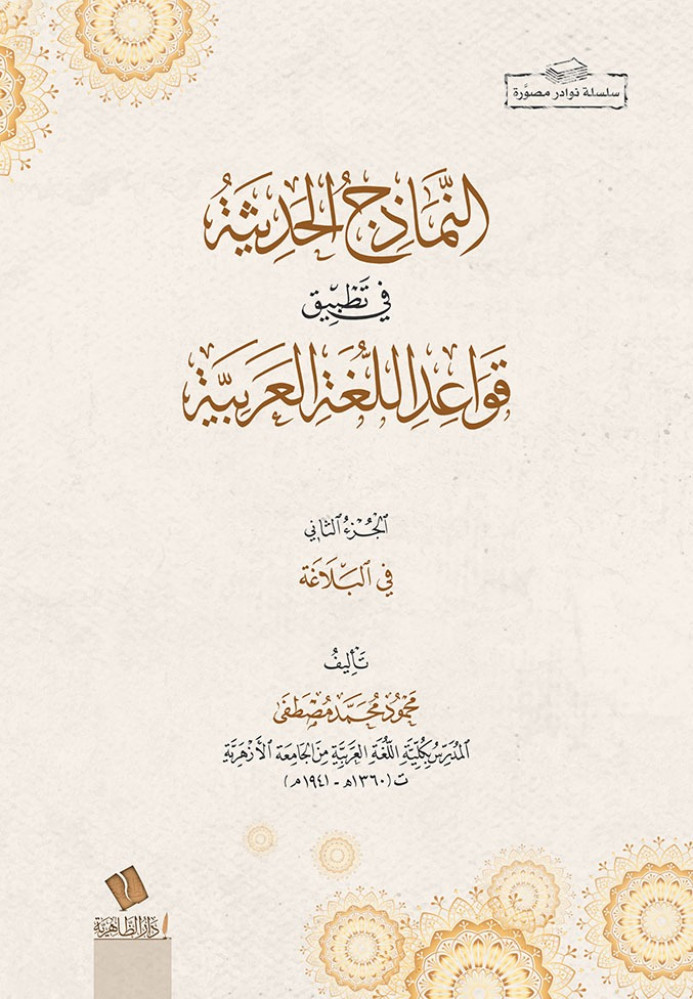 سلسلة نوادر مصوَّرة
النَّمَاذِجُ الحَدِيثَةُ
في تَطْبِيْق
قَوَاعِدِ اللُّغَةِ العَرَبِيَّة
الجُزْءُ الثَّانِي
في البَلَاغَة
تَأليفُ
محمُود مُحَمَّد مُصْطَفَى
المُدَرِّسُ بِكُلِّيَّةِ اللُّغَةِ العَرَبِيَّةِ مِنَ الجَامِعَة الأَزْهَرِيَّة
ت (١٣٦٠هـ - ١٩٤١م)
دَارُ الظَّاهِرِيَّة